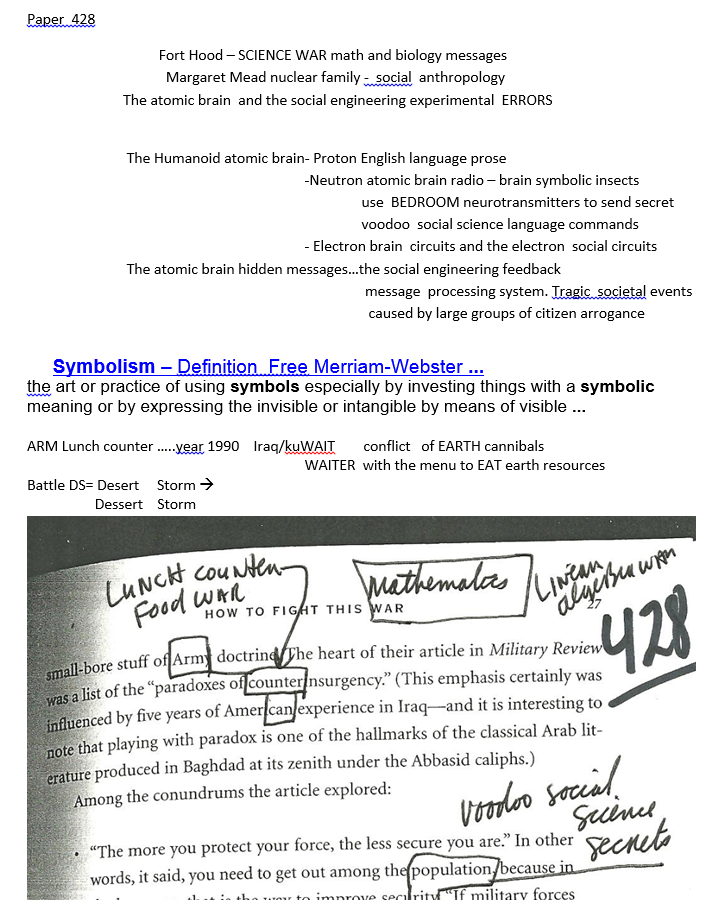 Paper 428
Fort Hood – SCIENCE WAR math and biology messages
Margaret Mead nuclear family - social anthropology
The atomic brain and the social engineering experimental ERRORS
The Humanoid atomic brain- Proton English language prose
-Neutron atomic brain radio – brain symbolic insects
use BEDROOM neurotransmitters to send secret
voodoo social science language commands
- Electron brain circuits and the electron social circuits
The atomic brain hidden messages...the social engineering feedback
message processing system. Tragic societal events
caused by large groups of citizen arrogance
Symbolism – Definition Free Merriam-Webster ...
the art or practice of using symbols especially by investing things with a symbolic
meaning or by expressing the invisible or intangible by means of visible ...
ARM Lunch counter .....year 1990 Iraq/kuWAIT conflict of EARTH cannibals
WAITER with the menu to EAT earth resources
Battle DS= Desert Storm →
Dessert Storm
LUNCH COUNTER
FOOD WAR
Mathematics
LINEAR
algebra WAR
HOW TO FIGHT THIS WAR
27
428
small-bore stuff of Army doctrine. The heart of their article in Military Review
was a list of the "paradoxes of counterinsurgency." (This emphasis certainly was
influenced by five years of American experience in Iraq—and it is interesting to
note that playing with paradox is one of the hallmarks of the classical Arab lit-
erature produced in Baghdad at its zenith under the Abbasid caliphs.)
Among the conundrums the article explored:
voodoo social
science
secrets
• "The more you protect your force, the less secure you are." In other
words, it said, you need to get out among the population, because in
is the way to improve security. "If military forces